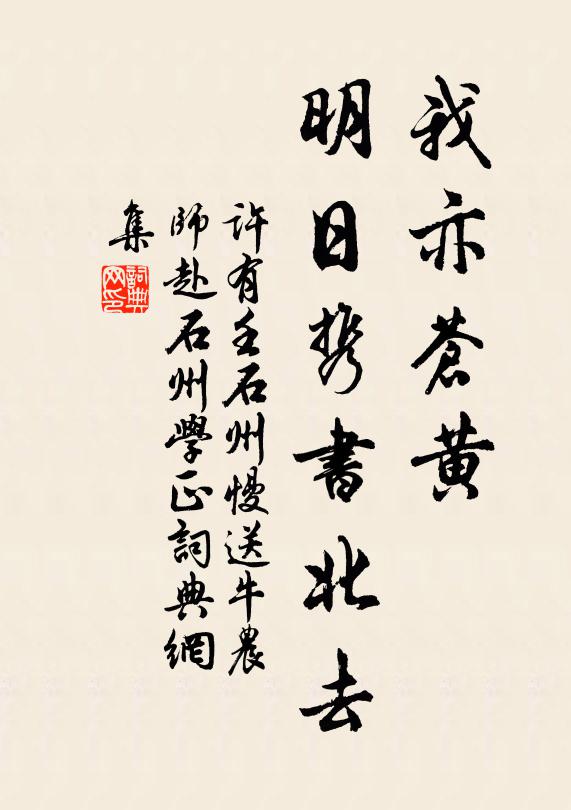 我亦蒼黄
明日携書北去
許有壬石州慢送牛農
師赴石州學正詞典網
集
詞典
网印